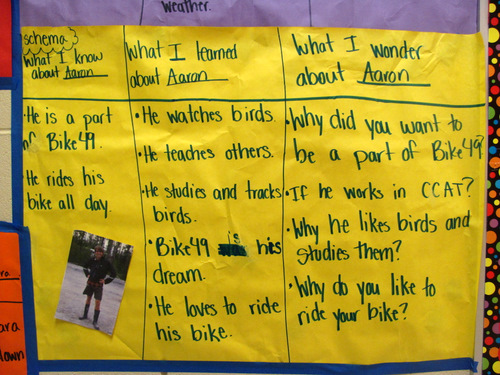 weather.
schema
What I know
about Aaron
What I learned
about Aaron
What I wonder
about Aaron
• He is a part
of Bike49.
• He rides his
bike all day.
• He watches birds.
• He teaches others.
• He studies and tracks
birds.
• Bike49 is his
dream.
• He loves to ride
his bike.
• Why did you want to
be a part of Bike49?
• If he works in CCAT?
• Why he likes birds and
studies them?
• Why do you like to
ride your bike?